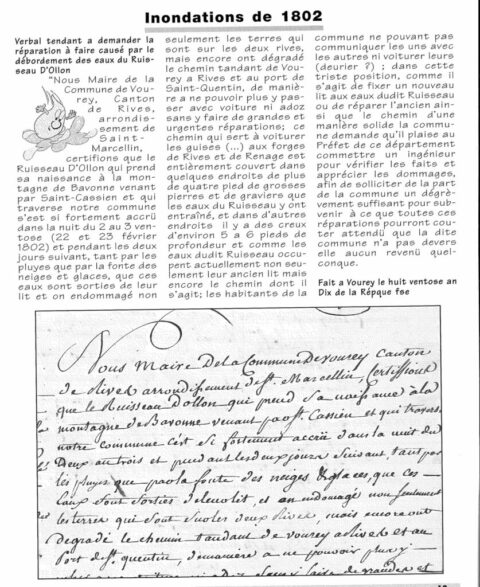 Inondations de 1802
Verbal tendant a demander la
réparation à faire causé par le
débordement des eaux du Ruis-
seau D'Ollon
"Nous Maire de la
Commune de Vou-
rey, Canton
de Rives,
arrondis-
sement de
Saint-
Marcellin,
certifions que le
Ruisseau D'Ollon qui prend
sa naissance à la mon-
tagne de Bavonne venant
par Saint-Cassien et qui
traverse notre commune
s'est si fortement accrü
dans la nuit du 2 au 3 ven-
tose (22 et 23 février
1802) et pendant les deux
jours suivant, tant par les
pluyes que par la fonte des
neiges et glaces, que ces
eaux sont sorties de leur
lit et on endommagé non
seulement les terres qui
sont sur les deux rives,
mais encore ont dégradé
le chemin tandant de Vou-
rey a Rives et au port de
Saint-Quentin, de maniè-
re a ne pouvoir plus y pas-
ser avec voiture ni adoz
sans y faire de grandes et
urgentes réparations; ce
chemin qui sert à voiturer
les guises (...) aux forges
de Rives et de Renage est
entièrement couvert dans
quelques endroits de plus
de quatre pied de grosses
pierres et de graviers que
les eaux du Ruisseau y ont
entraîné, et dans d'autres
endroits il y a des creux
d'environ 5 a 6 pieds de
profondeur et comme les
eaux dudit Ruisseau occu-
pent actuellement non seu-
lement leur ancien lit mais
encore le chemin dont il
s'agit; les habitants de la
commune ne pouvant pas
communiquer les uns avec
les autres ni voiturer leurs
(deurier ?) ; dans cette
triste position, comme il
s'agit de fixer un nouveau
lit aux eaux dudit Ruisseau
ou de réparer l'ancien ain-
si que le chemin d'une
manière solide la commu-
ne demande qu'il plaise au
Préfet de ce département
commettre un ingénieur
pour vérifier les faits et
apprécier les dommages,
afin de solliciter de la part
de la commune un dégrè-
vement suffisant pour sub-
venir à ce que toutes ces
réparations pourront cou-
ter attendü que la dite
commune n'a pas devers
elle aucun revenü quel-
conque.
Fait a Vourey le huit ventose an
Dix de la Répque fse
Nous Maire De la Commune De vourey Canton
de Rives arrondissement de St. Marcellin, Certiffions
que le Ruisseau D'ollon qui prend sa naissance à la
montagne de Bavonne venant par St. Cassien et qui traverse
notre commune s'est si fortement accrü dans la nuit du
Deux au trois et pendant les deux jours suivant, tant par
les pluyes que par la fonte des neiges & glaces, que ces
Eaux sont sorties de leur lit, et on endomagé non seulement
les terres qui sont sur les deux Rives, mais encore ont
degradé le chemin tandant de vourey a Rives et au
Port de St. quentin, de maniere a ne pouvoir plus y
sans y faire de grandes et